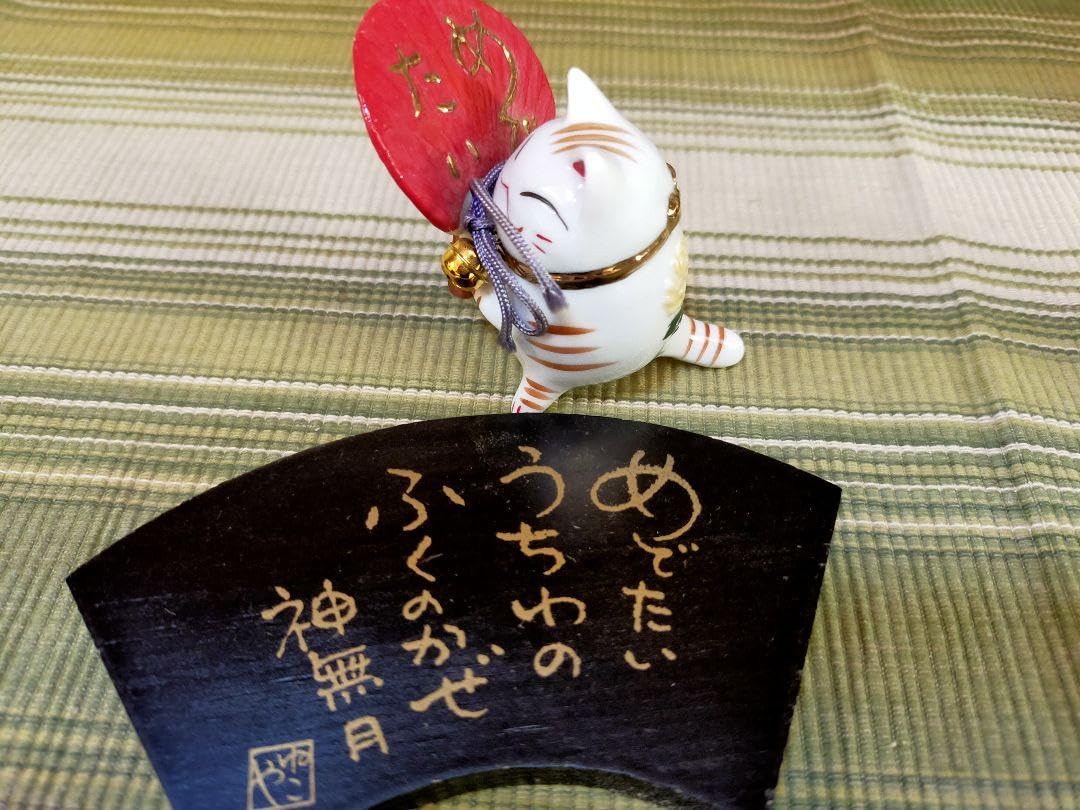 めで
たい
めでたい
うちわの
ふくのかぜ
神無月